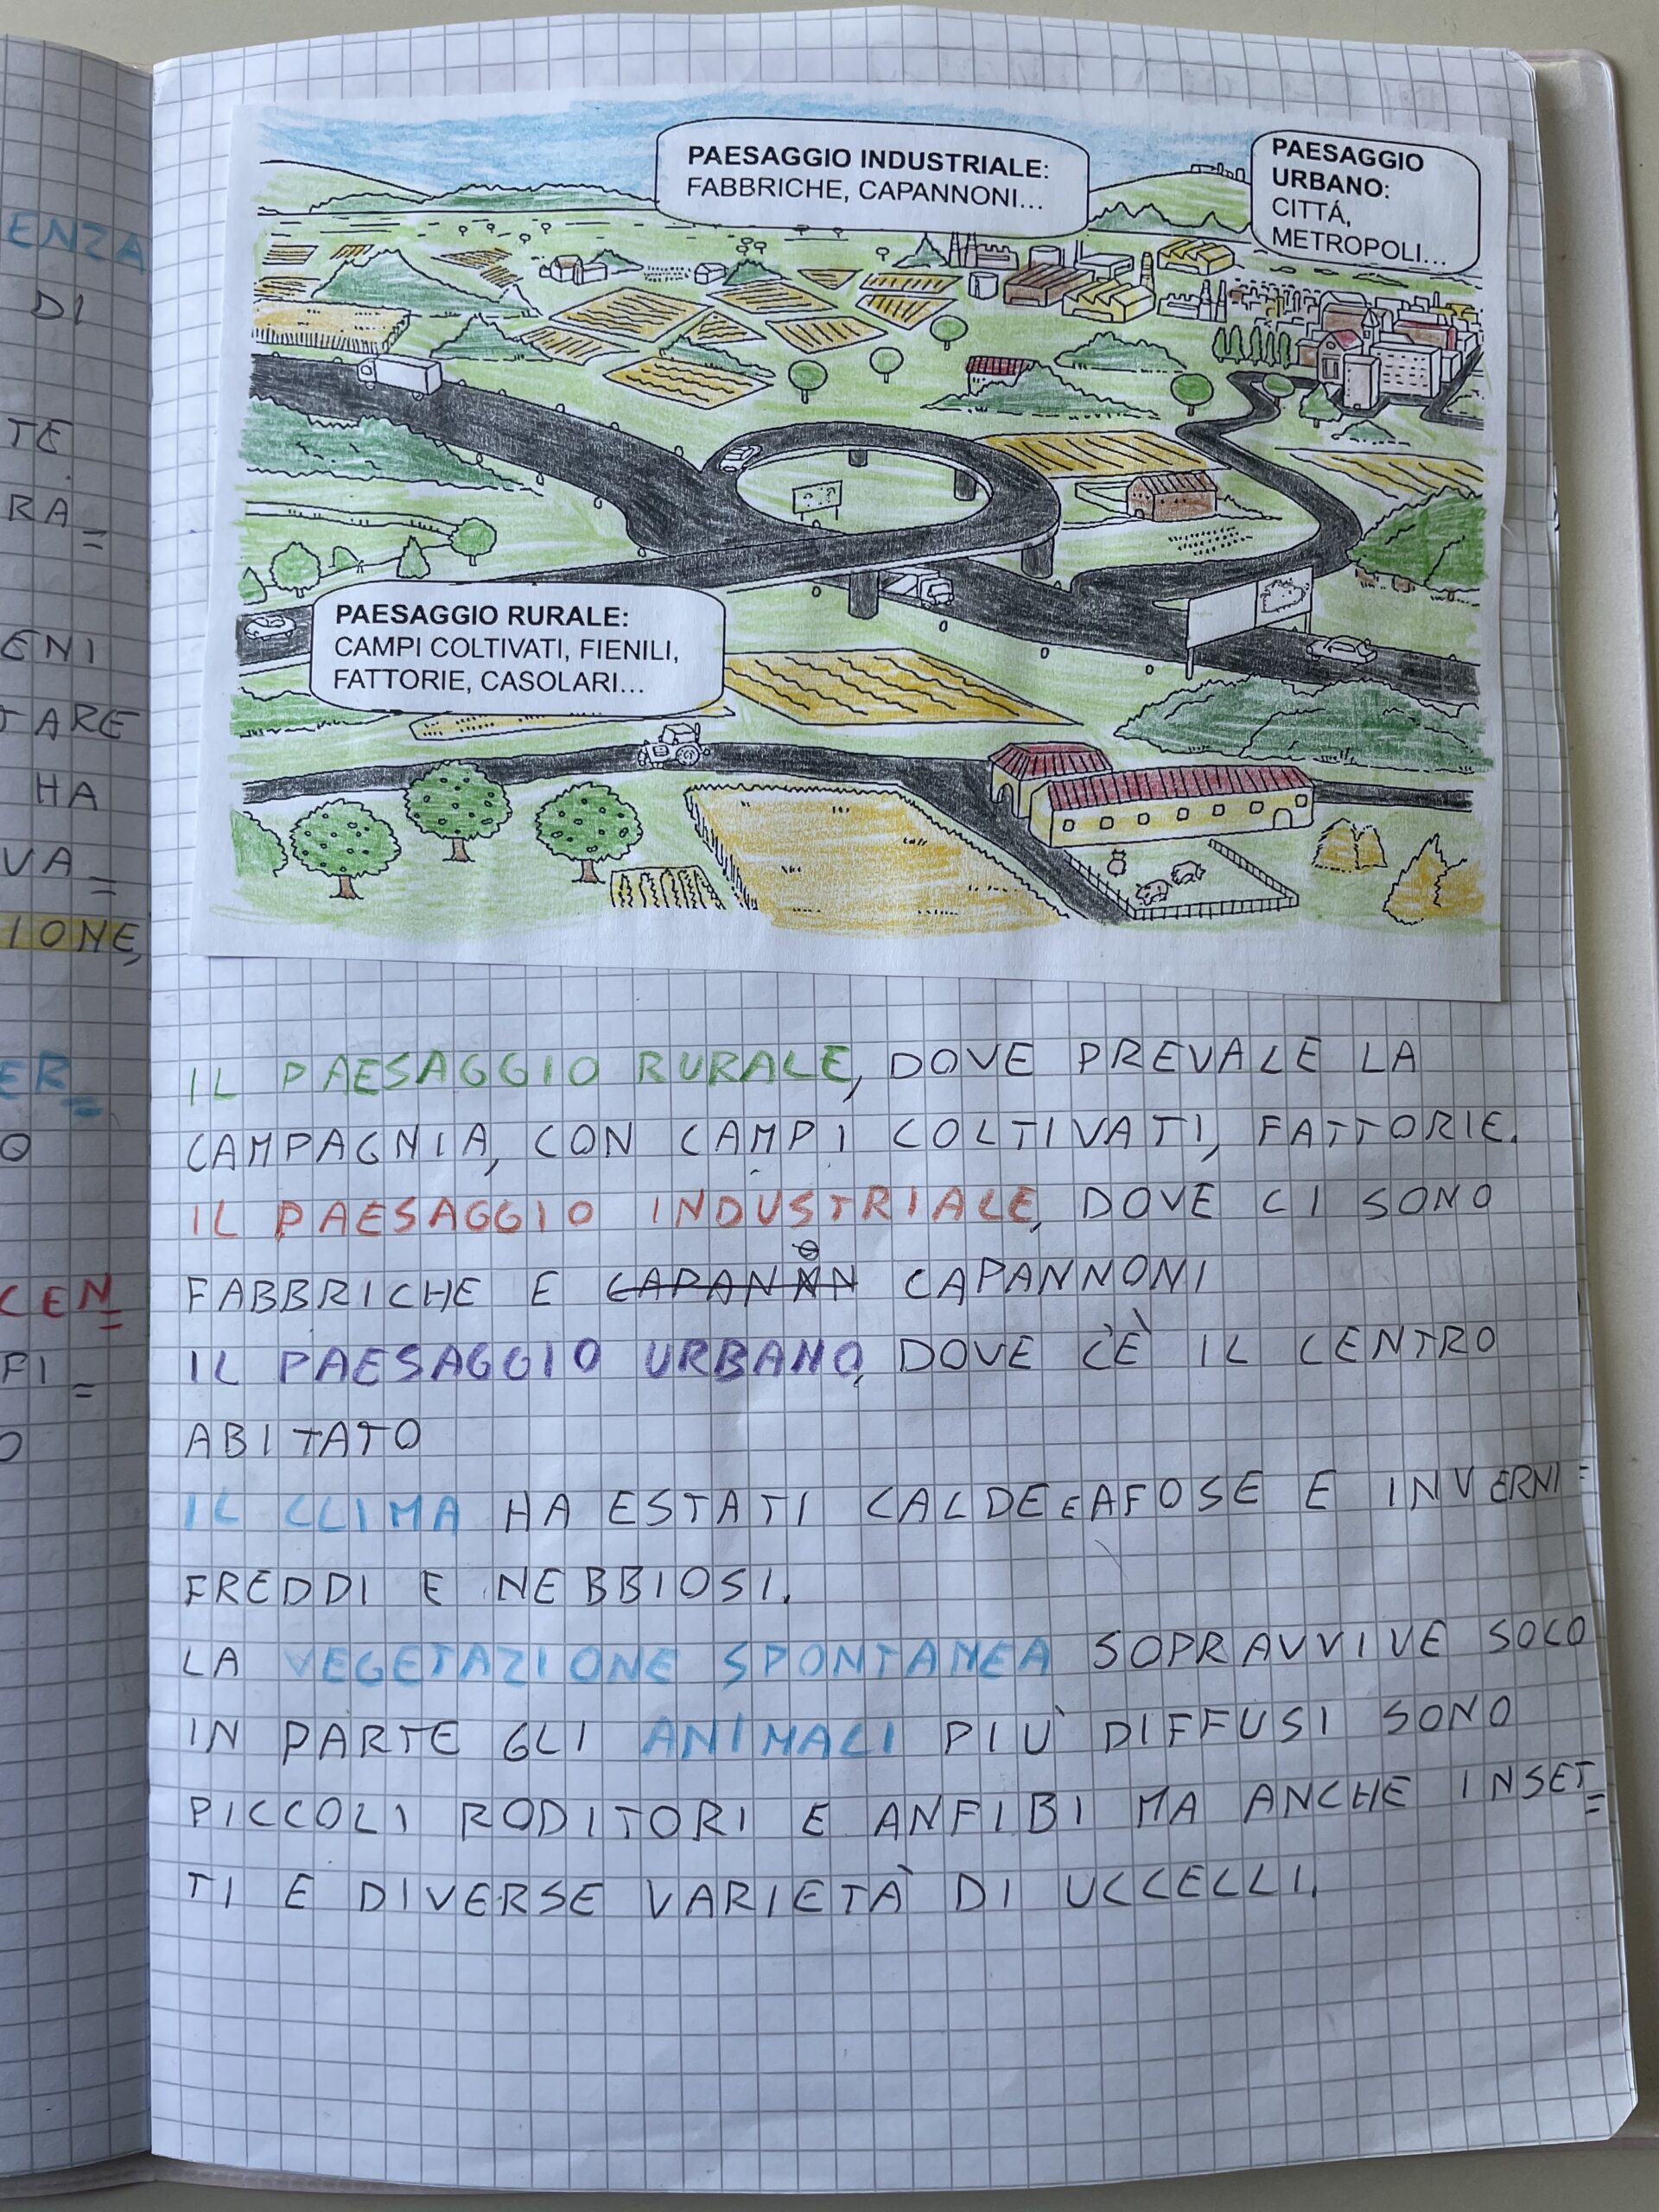 PAESAGGIO INDUSTRIALE:
FABBRICHE, CAPANNONI...
PAESAGGIO
URBANO:
CITTÁ,
METROPOLI...
PAESAGGIO RURALE:
CAMPI COLTIVATI, FIENILI,
FATTORIE, CASOLARI...
ENZA
DI
TE.
RA=
ENI
TARE
HA
VA=
IONE,
ER=
O
CEN=
FI=
O
IL PAESAGGIO RURALE, DOVE PREVALE LA
CAMPAGNIA, CON CAMPI COLTIVATI, FATTORIE.
IL PAESAGGIO INDUSTRIALE, DOVE CI SONO
FABBRICHE E CAPANNN CAPANNONI
IL PAESAGGIO URBANO, DOVE C'È IL CENTRO
ABITATO
IL CLIMA HA ESTATI CALDE E AFOSE E INVERNI=
FREDDI E NEBBIOSI.
LA VEGETAZIONE SPONTANEA SOPRAVVIVE SOLO
IN PARTE GLI ANIMALI PIÙ DIFFUSI SONO
PICCOLI RODITORI E ANFIBI MA ANCHE INSET=
TI E DIVERSE VARIETÀ DI UCCELLI.